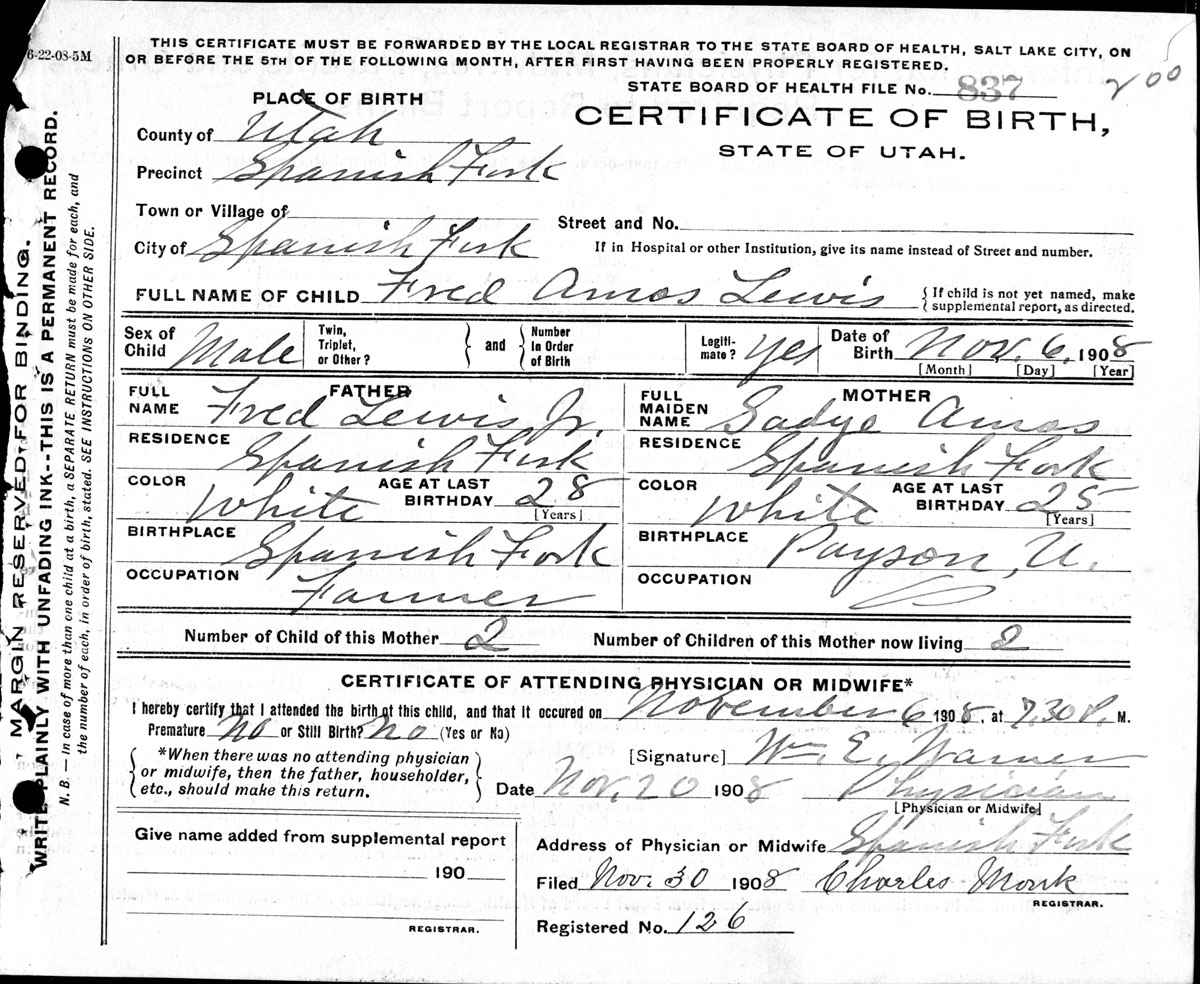 6-22-08-5M
THIS CERTIFICATE MUST BE FORWARDED BY THE LOCAL REGISTRAR TO THE STATE BOARD OF HEALTH, SALT LAKE CITY, ON
OR BEFORE THE 5TH OF THE FOLLOWING MONTH, AFTER FIRST HAVING BEEN PROPERLY REGISTERED.
STATE BOARD OF HEALTH FILE No. 837
200
PLACE OF BIRTH
CERTIFICATE OF BIRTH,
STATE OF UTAH.
County of Utah
Precinct Spanish Fork
Town or Village of
Street and No.
City of Spanish Fork
If in Hospital or other Institution, give its name instead of Street and number.
FULL NAME OF CHILD Fred Amos Lewis { If child is not yet named, make
supplemental report, as directed.
Sex of Child Male
Twin, Triplet, or Other? } and { Number in Order of Birth
Legiti-mate? yes
Date of Birth Nov. 6, 1908
[Month] [Day] [Year]
FATHER
FULL NAME Fred Lewis Jr.
RESIDENCE Spanish Fork
COLOR White AGE AT LAST BIRTHDAY 28
[Years]
BIRTHPLACE Spanish Fork
OCCUPATION Farmer
MOTHER
FULL MAIDEN NAME Sadye Amos
RESIDENCE Spanish Fork
COLOR White AGE AT LAST BIRTHDAY 25
[Years]
BIRTHPLACE Payson, U.
OCCUPATION
Number of Child of this Mother 2 Number of Children of this Mother now living 2
CERTIFICATE OF ATTENDING PHYSICIAN OR MIDWIFE*
I hereby certify that I attended the birth of this child, and that it occured on November 6 1908, at 7.30 P. M.
Premature No or Still Birth? No (Yes or No)
{ *When there was no attending physician
or midwife, then the father, householder,
etc., should make this return. }
[Signature] Wm. E. Warner
Date Nov. 20 1908 Physician
[Physician or Midwife]
Address of Physician or Midwife Spanish Fork
Filed Nov. 30 1908 Charles Monk
REGISTRAR.
Registered No. 126
Give name added from supplemental report
190
REGISTRAR.
MARGIN RESERVED FOR BINDING.
WRITE PLAINLY WITH UNFADING INK--THIS IS A PERMANENT RECORD.
N. B. — In case of more than one child at a birth, a SEPARATE RETURN must be made for each, and
the number of each, in order of birth, stated. SEE INSTRUCTIONS ON OTHER SIDE.